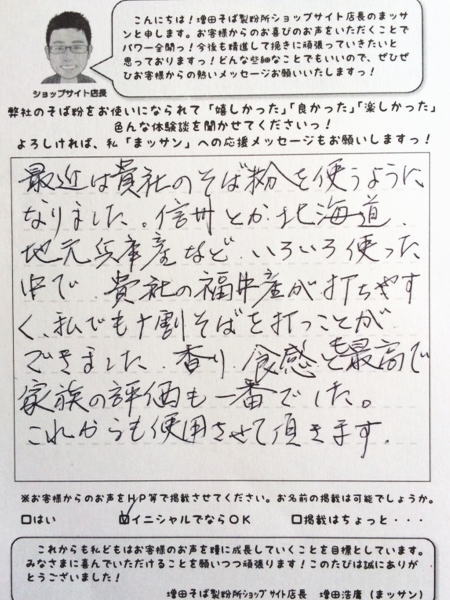 こんにちは！増田そば製粉所ショップサイト店長のまッサ
ンと申します。お客様からのお喜びのお声をいただくことで
パワー全開っ！今後も精進して挽きに頑張っていきたいと
思っておりますっ！どんな些細なことでもいいので、ぜひぜ
ひお客様からの熱いメッセージお願いいたしますっ！
ショップサイト店長
弊社のそば粉をお使いになられて「嬉しかった」「良かった」「楽しかった」
色んな体験談を聞かせてくださいっ！
よろしければ、私「まッサン」への応援メッセージもお願いしますっ！
最近は貴社のそば粉を使うように
なりました。信州とか北海道、
地元兵庫産など、いろいろ使った
中で、貴社の福井産が打ちやす
く、私でも十割そばを打つことが
できました。香り、食感とも最高で
家族の評価も一番でした。
これからも使用させて頂きます。
※お客様からのお声をHP等で掲載させてください。お名前の掲載は可能でしょうか。
□はい ☑イニシャルでならOK □掲載はちょっと・・・
これからも私どもはお客様のお声を糧に成長していくことを目標としています。
みなさまに喜んでいただけることを願いつつ頑張ります！このたびは誠にありが
とうございました！
増田そば製粉所ショップサイト店長 増田浩庸（まッサン）